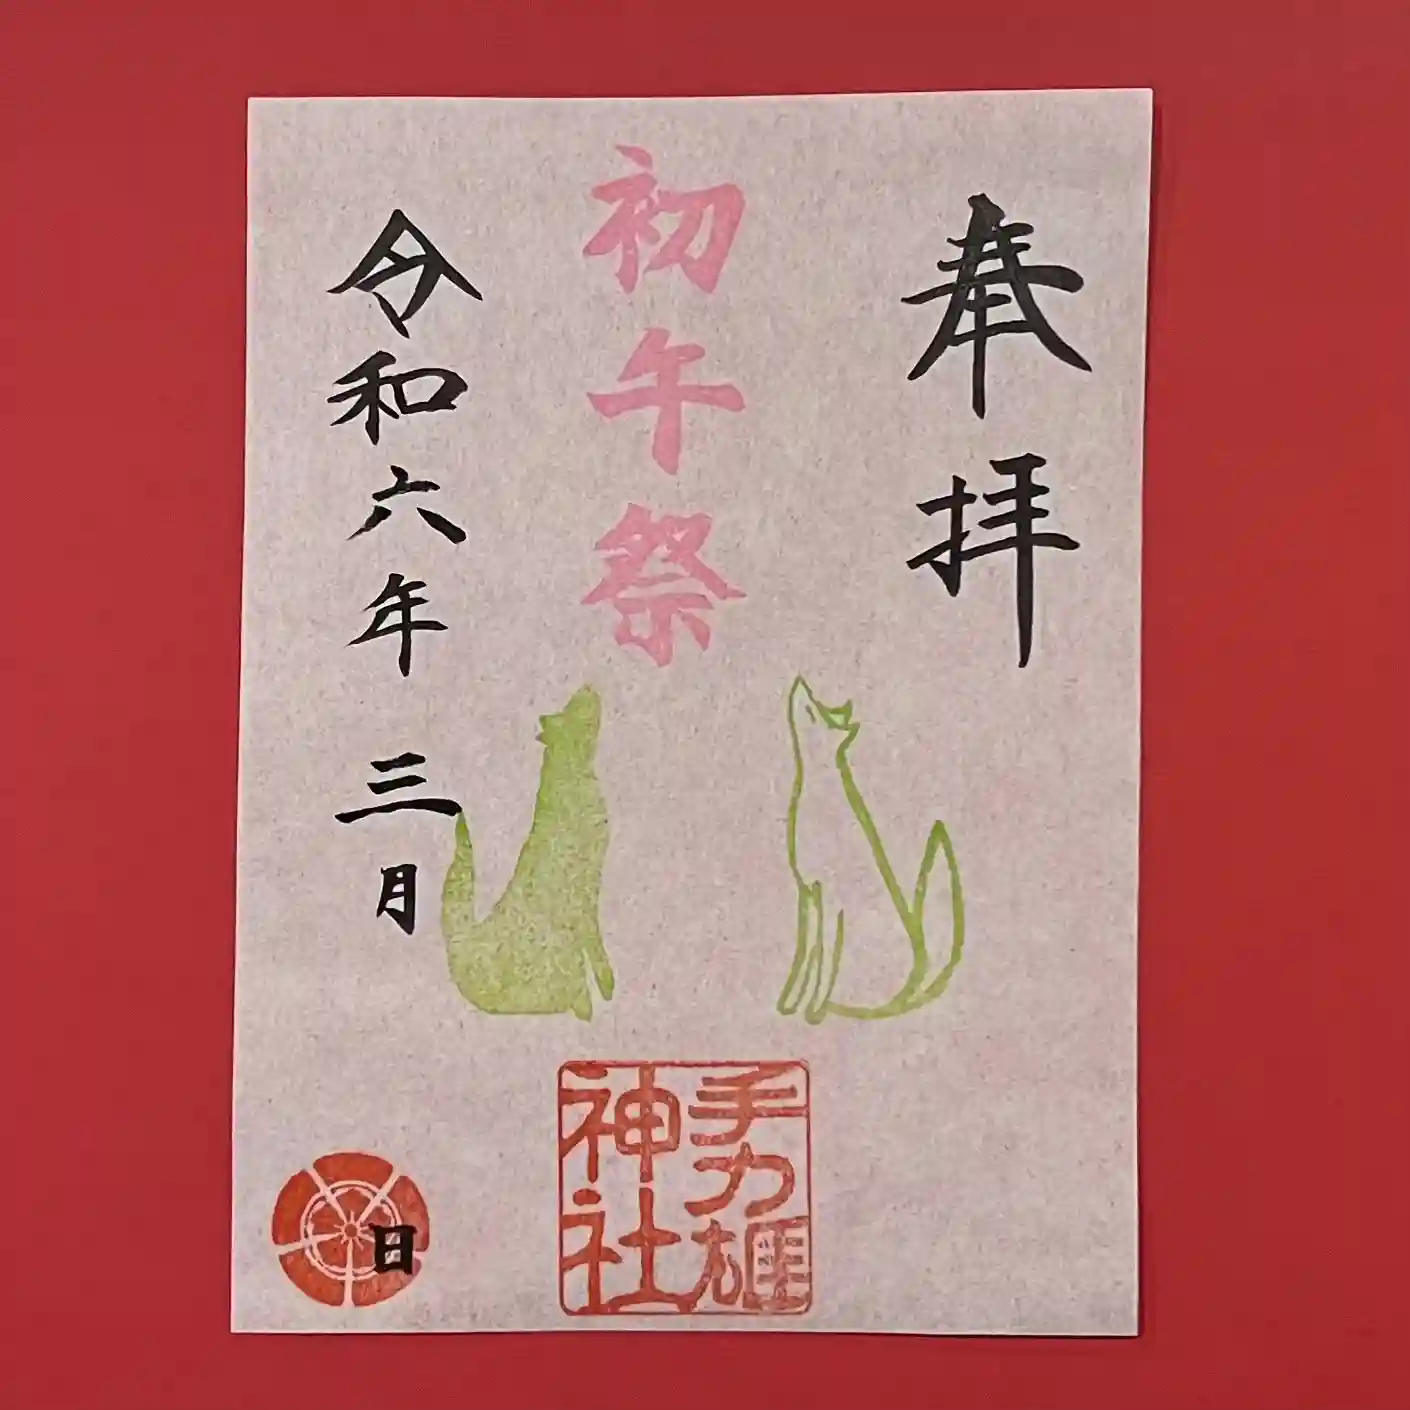 奉拝
初午祭
手力雄
神社
令和六年 三月 日